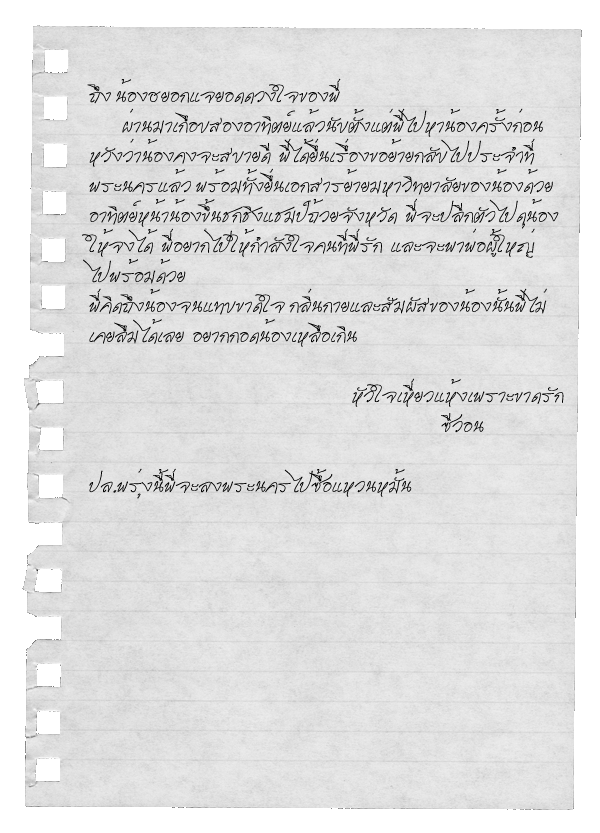 ถึง น้องฮยอกแจยอดดวงใจของพี่
ผ่านมาเกือบสองอาทิตย์แล้วนับตั้งแต่พี่ไปหาน้องครั้งก่อน
หวังว่าน้องคงจะสบายดี พี่ได้ยื่นเรื่องขอย้ายกลับไปประจำที่
พระนครแล้ว พร้อมทั้งยื่นเอกสารย้ายมหาวิทยาลัยของน้องด้วย
อาทิตย์หน้าน้องขึ้นชกชิงแชมป์ถ้วยจังหวัด พี่จะปลีกตัวไปดูน้อง
ให้จงได้ พี่อยากไปให้กำลังใจคนที่พี่รัก และจะพาพ่อผู้ใหญ่
ไปพร้อมด้วย
พี่คิดถึงน้องจนแทบขาดใจ กลิ่นกายและสัมผัสของน้องนั้นพี่ไม่
เคยลืมได้เลย อยากกอดน้องเหลือเกิน
หัวใจเหี่ยวแห้งเพราะขาดรัก
ชีวอน
ปล.พรุ่งนี้พี่จะลงพระนครไปซื้อแหวนหมั้น